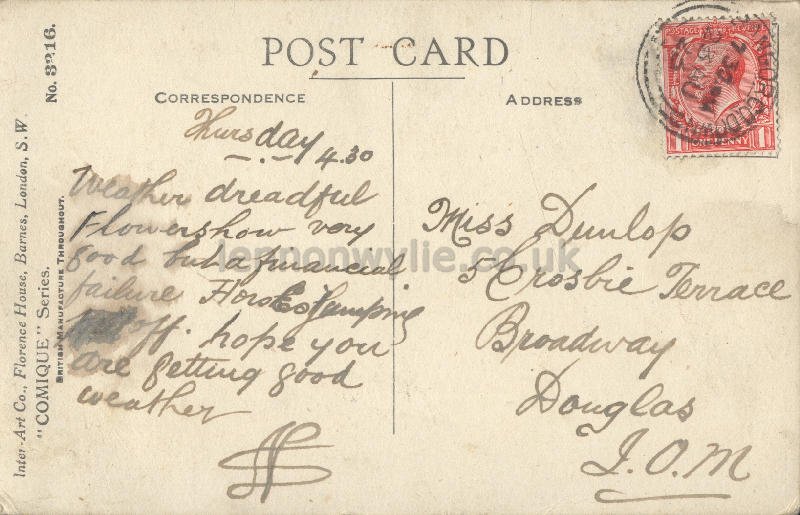 POST CARD
CORRESPONDENCE
Thursday 4.30
Weather dreadful
Flowershow very
good but a financial
failure Horse Jumping
off. hope you
are getting good
weather
ADDRESS
Miss Dunlop
5 Crosbie Terrace
Broadway
Douglas
I.O.M
POSTAGE REVENUE
ONE PENNY
No. 3216.
Inter-Art Co., Florence House, Barnes, London, S.W.
"COMIQUE" Series.
BRITISH MANUFACTURE THROUGHOUT.
lennonwylie.co.uk